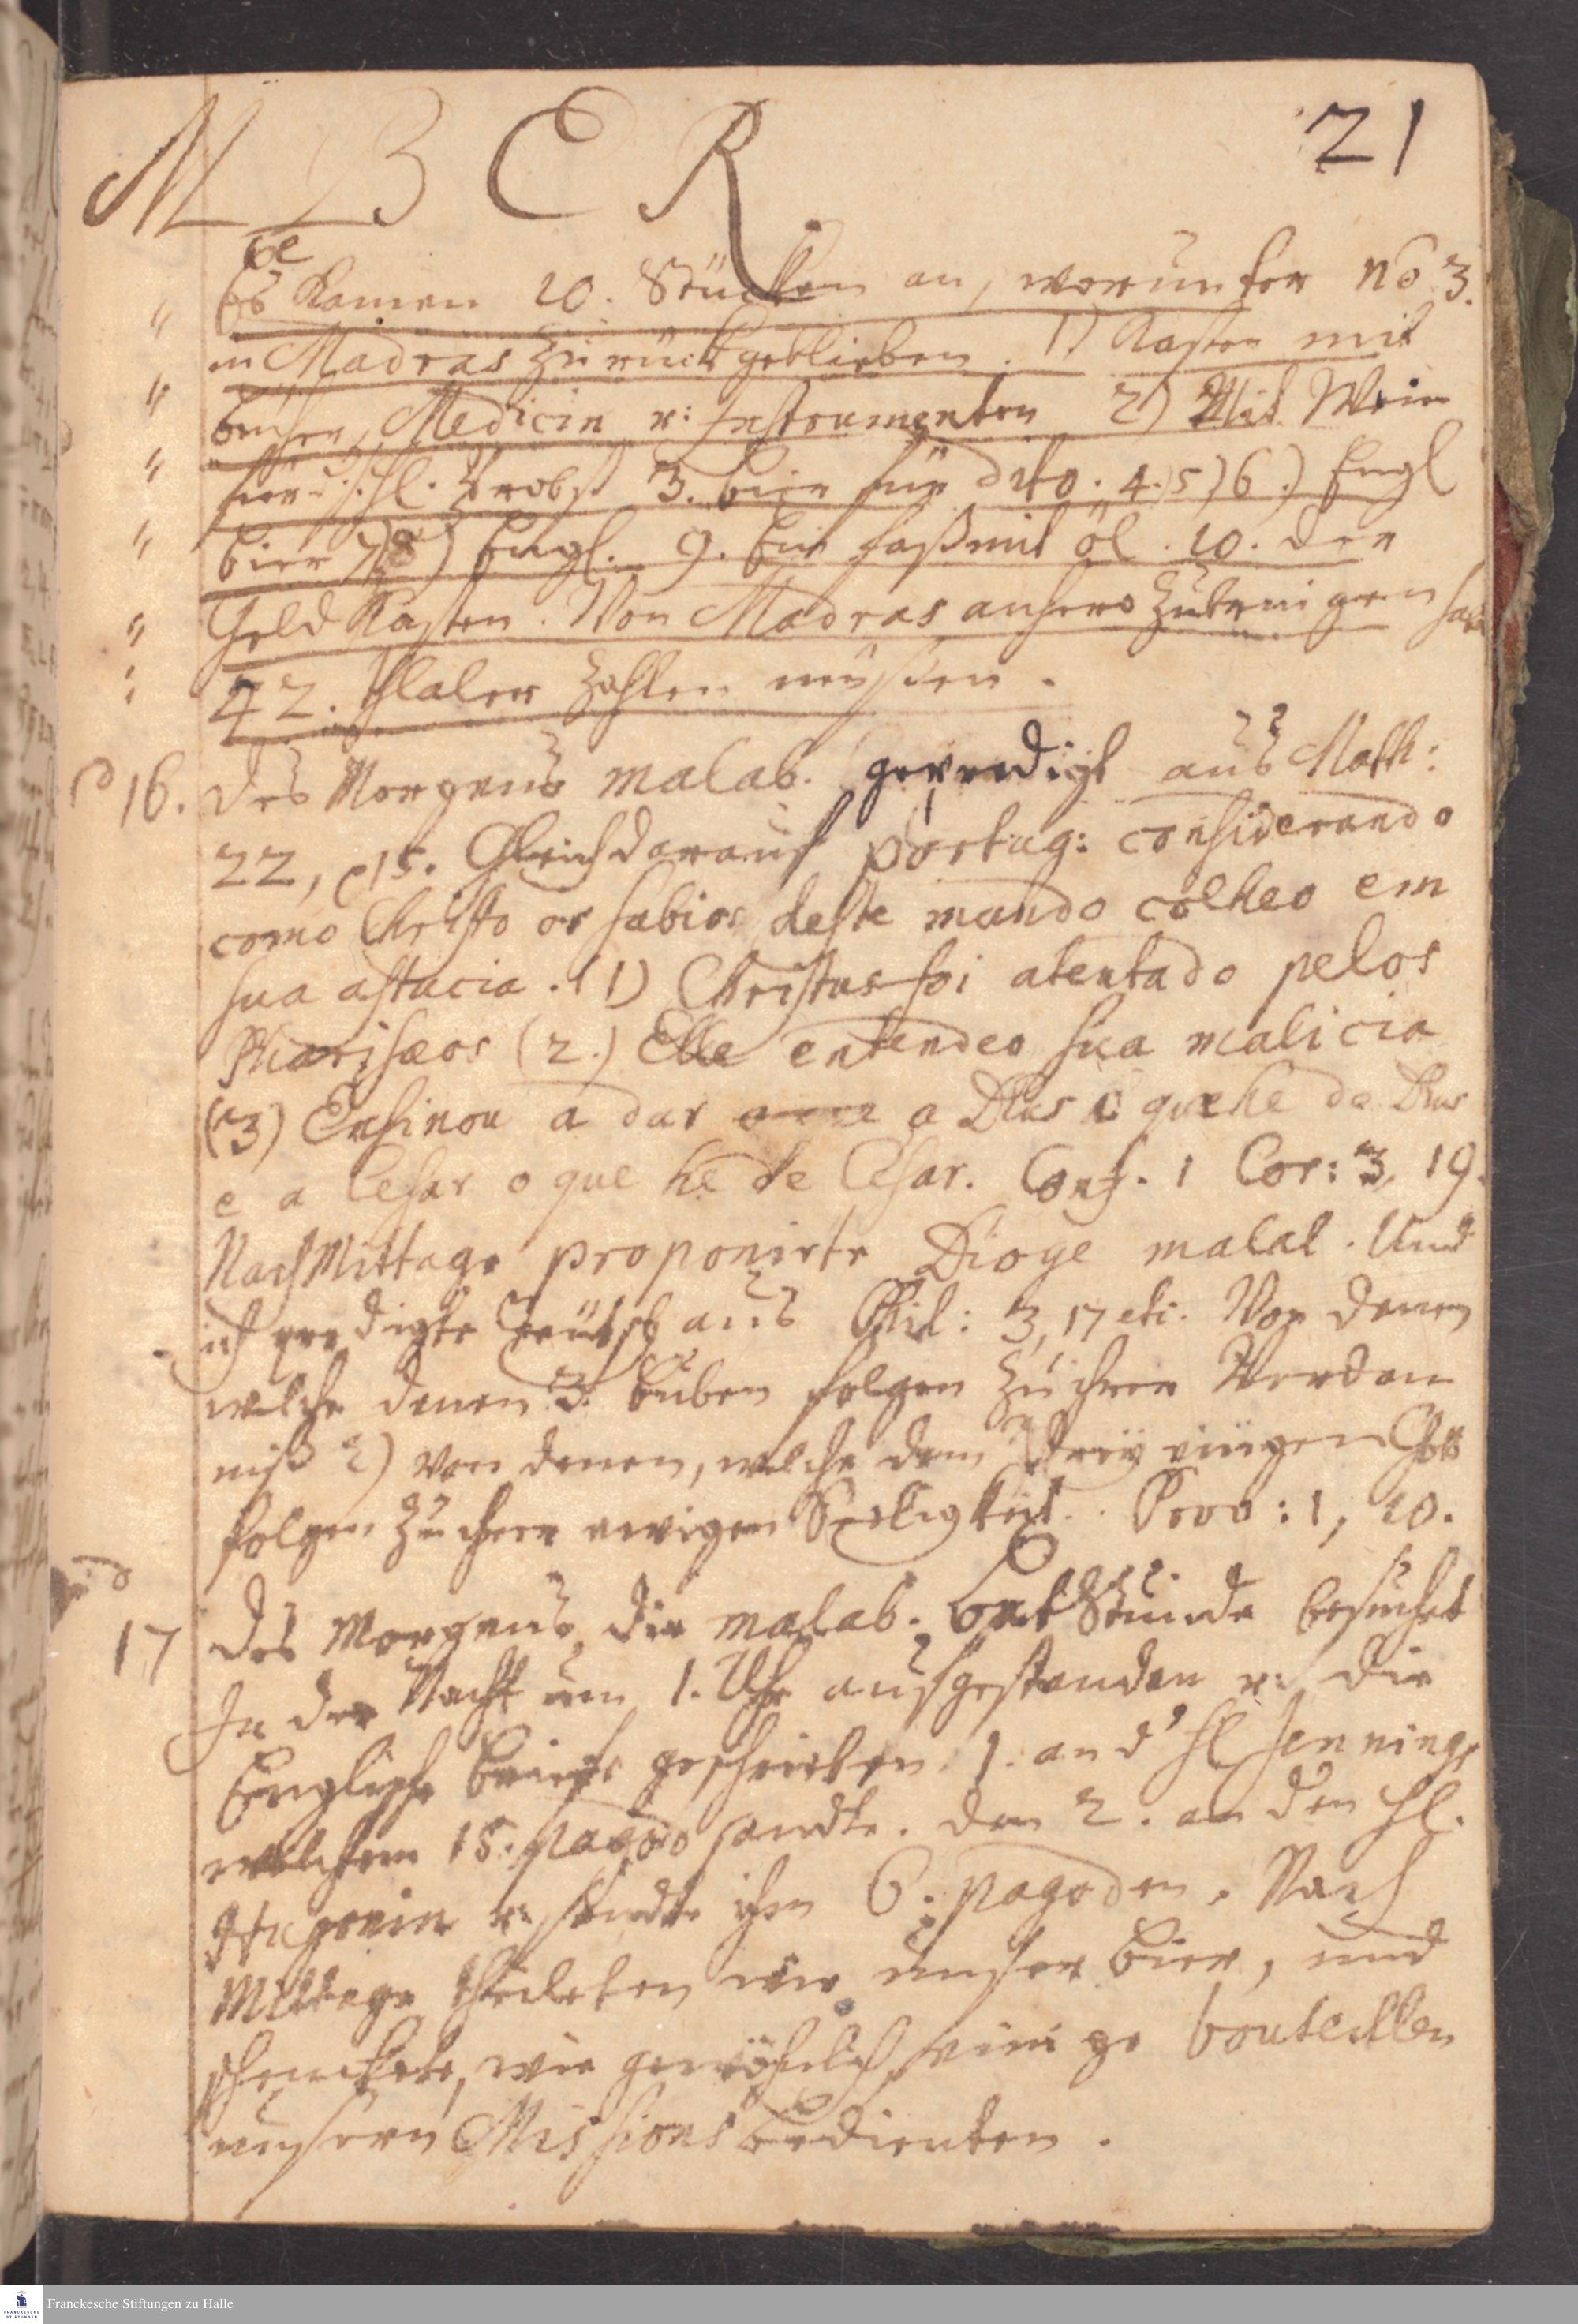 M B E R
21
Es Kamen 10. Stücken an, worunter no 3.
in Madras zurückgeblieben. 1) Kasten mit
bücher, Medicin u: Instrumenten 2) Mit Wein
3. bier für dito. 4.) 5) 6.) Engl
bier 7) 8) Engl. 9. Ein faß mit öl. 10. der
Geld Kasten. Von Madras anhero zubringen hab
42. thaler zahlen müßen.
16. Des Morgens malab. geprediget aus Math:
22, 15. Gleich darauf portug: considerando
como Christo os sabios deste mundo colheo em
sua astucia. (1) Christus foi atentado pelos
Pharisæos (2.) Elle entendeo sua malicia
(3) Ensinou a dar a Deus o que he de Deus
e a Cesar o que he de Cesar. Conf. 1 Cor: 3, 19.
NachMittage proponirte Dioge malab. Und
ich predigte Teutsch aus Phil: 3, 17 etc. Von denen
welche denen 3. buben folgen zu ihrer Verdam
niß 2) von denen, welche dem drey einigen Gott
folgen zu ihrer ewigen Seeligkeit. Prov: 1, 10.
17 Des Morgens die malab. betStunde besuchet
In der Nacht um 1. Uhr aufgestanden u: die
Englische briefe geschrieben. 1. an d' H Jennings
welchem 15. pagod sandte. den 2. an den H.
u: sandte ihm 6. pagoden. Nach
Mittage theileten wir unser bier, und
schenckete, wie gewöhnlich einige bouteillen
unsern Missions bedienten.
Franckesche Stiftungen zu Halle